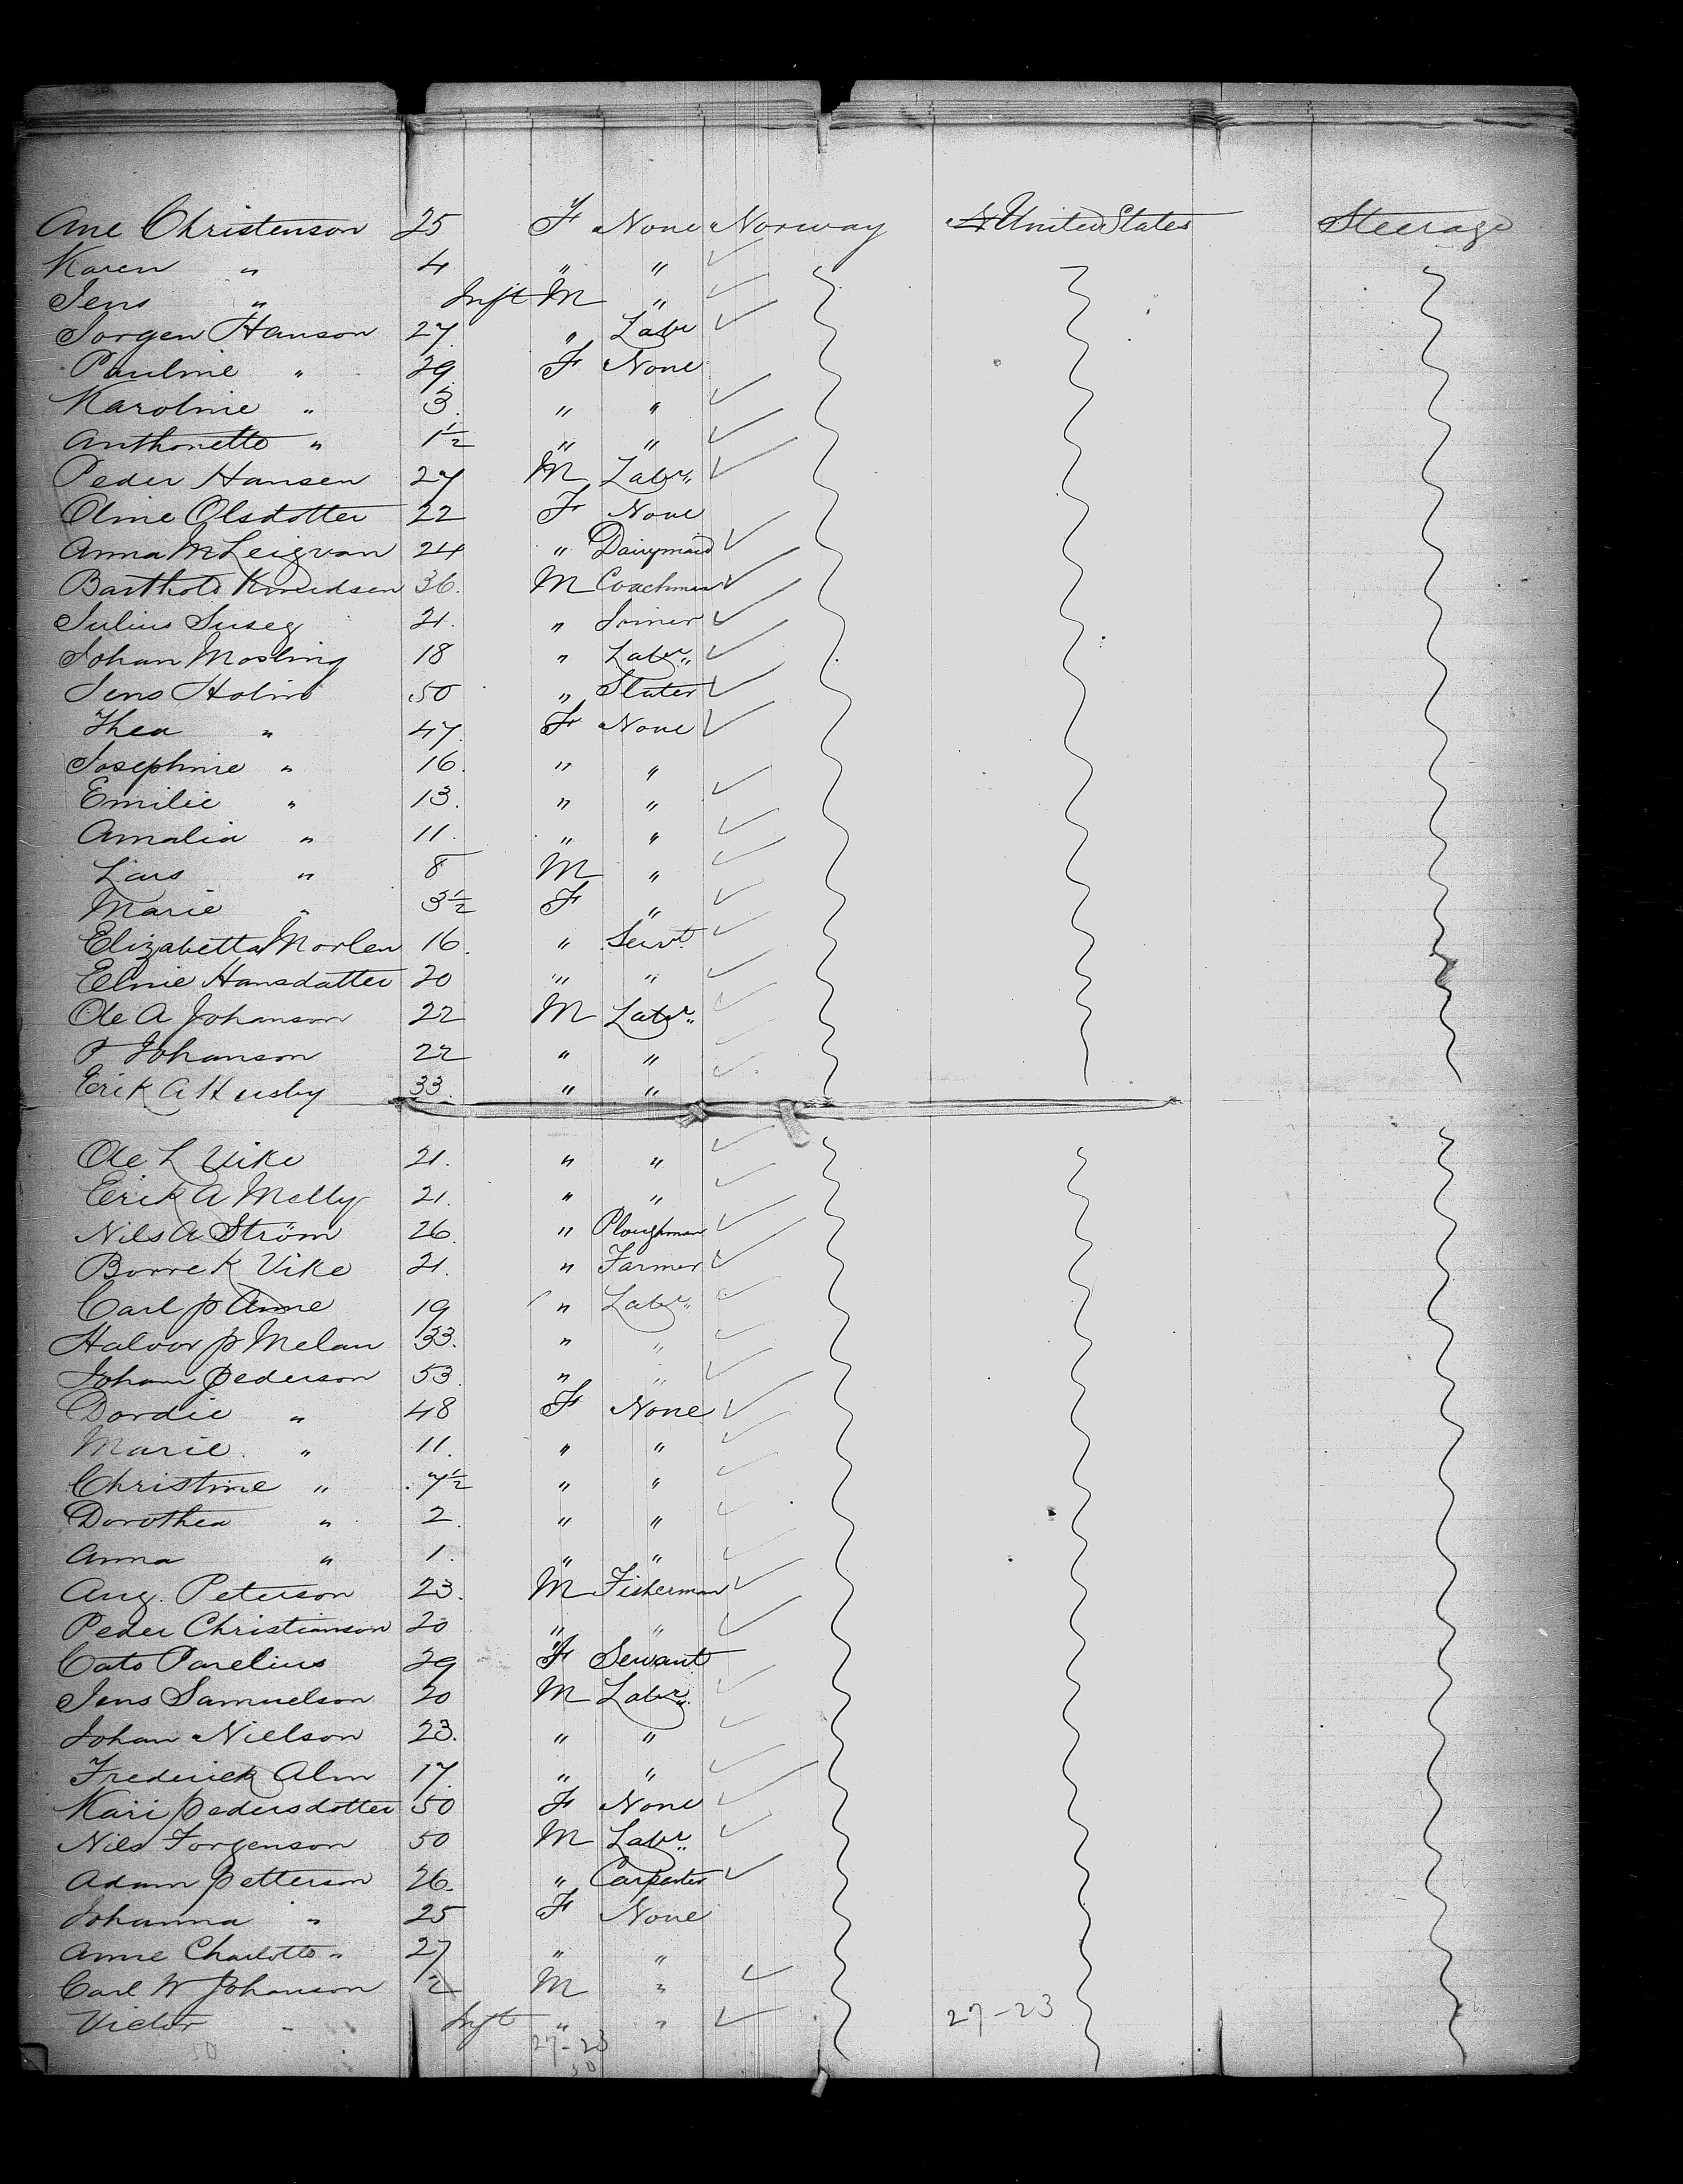 Ane Christenson 25 F None Norway United States Steerage
Karen " 4 " "
Jens " Inft M "
Jorgen Hanson 27 " Labr
Pauline " 29 F None
Karoline " 3 " "
Anthonette " 1½ " "
Peder Hansen 27 M Labr
Oline Olsdotter 22 F None
Anna M Leigvan 24 " Dairymaid
Barthold Knudsen 36 M Coachman
Julius Suseg 21 " Joiner
Johan Mosling 18 " Labr
Jens Holm 50 " Slater
Thea " 47 F None
Josephine " 16 " "
Emilie " 13 " "
Amalia " 11 " "
Lars " 8 M "
Marie " 3½ F "
Elizabetta Morlen 16 " Servt
Eline Hansdatter 20 " "
Ole A Johanson 22 M Labr
P Johanson 22 " "
Erik A Husby 33 " "
Ole L Vike 21 " "
Erik A Melby 21 " "
Nils A Ström 26 " Ploughman
Borre K Vike 21 " Farmer
Carl p Anne 19 " Labr
Halvor p Melan 33 " "
Johan pederson 53 " "
Dordie " 48 F None
Marie " 11 " "
Christine " 7½ " "
Dorothea " 2 " "
Anna " 1 " "
Aug. Peterson 23 M Fisherman
Peder Christianson 20 " "
Cato Parelius 29 F Servant
Jens Samuelson 20 M Labr
Johan Nielson 23 " "
Frederick Alm 17 " "
Kari pedersdotter 50 F None
Nils Jorgenson 50 M Labr
Adam petterson 26 " Carpenter
Johanna " 25 F None
Anne Charlotte " 27 " "
Carl W Johanson ½ M "
Victor " Inft " " 27-23
50 27-23
50